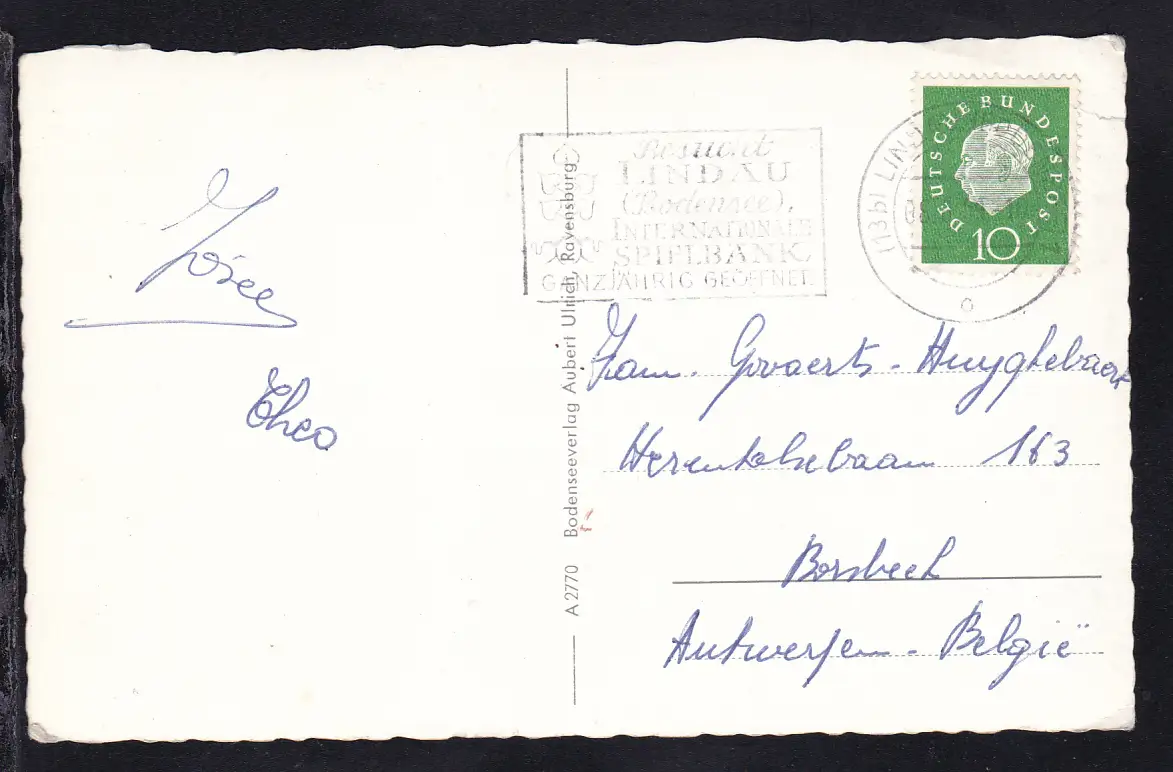 Josée
Theo
A 2770 Bodenseeverlag Aubert Ulrich, Ravensburg
Besucht
LINDAU
(Bodensee).
INTERNATIONALE
SPIELBANK
GANZJÄHRIG GEÖFFNET.
(13b) LIND
DEUTSCHE BUNDESPOST
10
Fam. Govaerts - Huyghebaert
Herentalsebaan 163
Borsbeek
Antwerpen - België